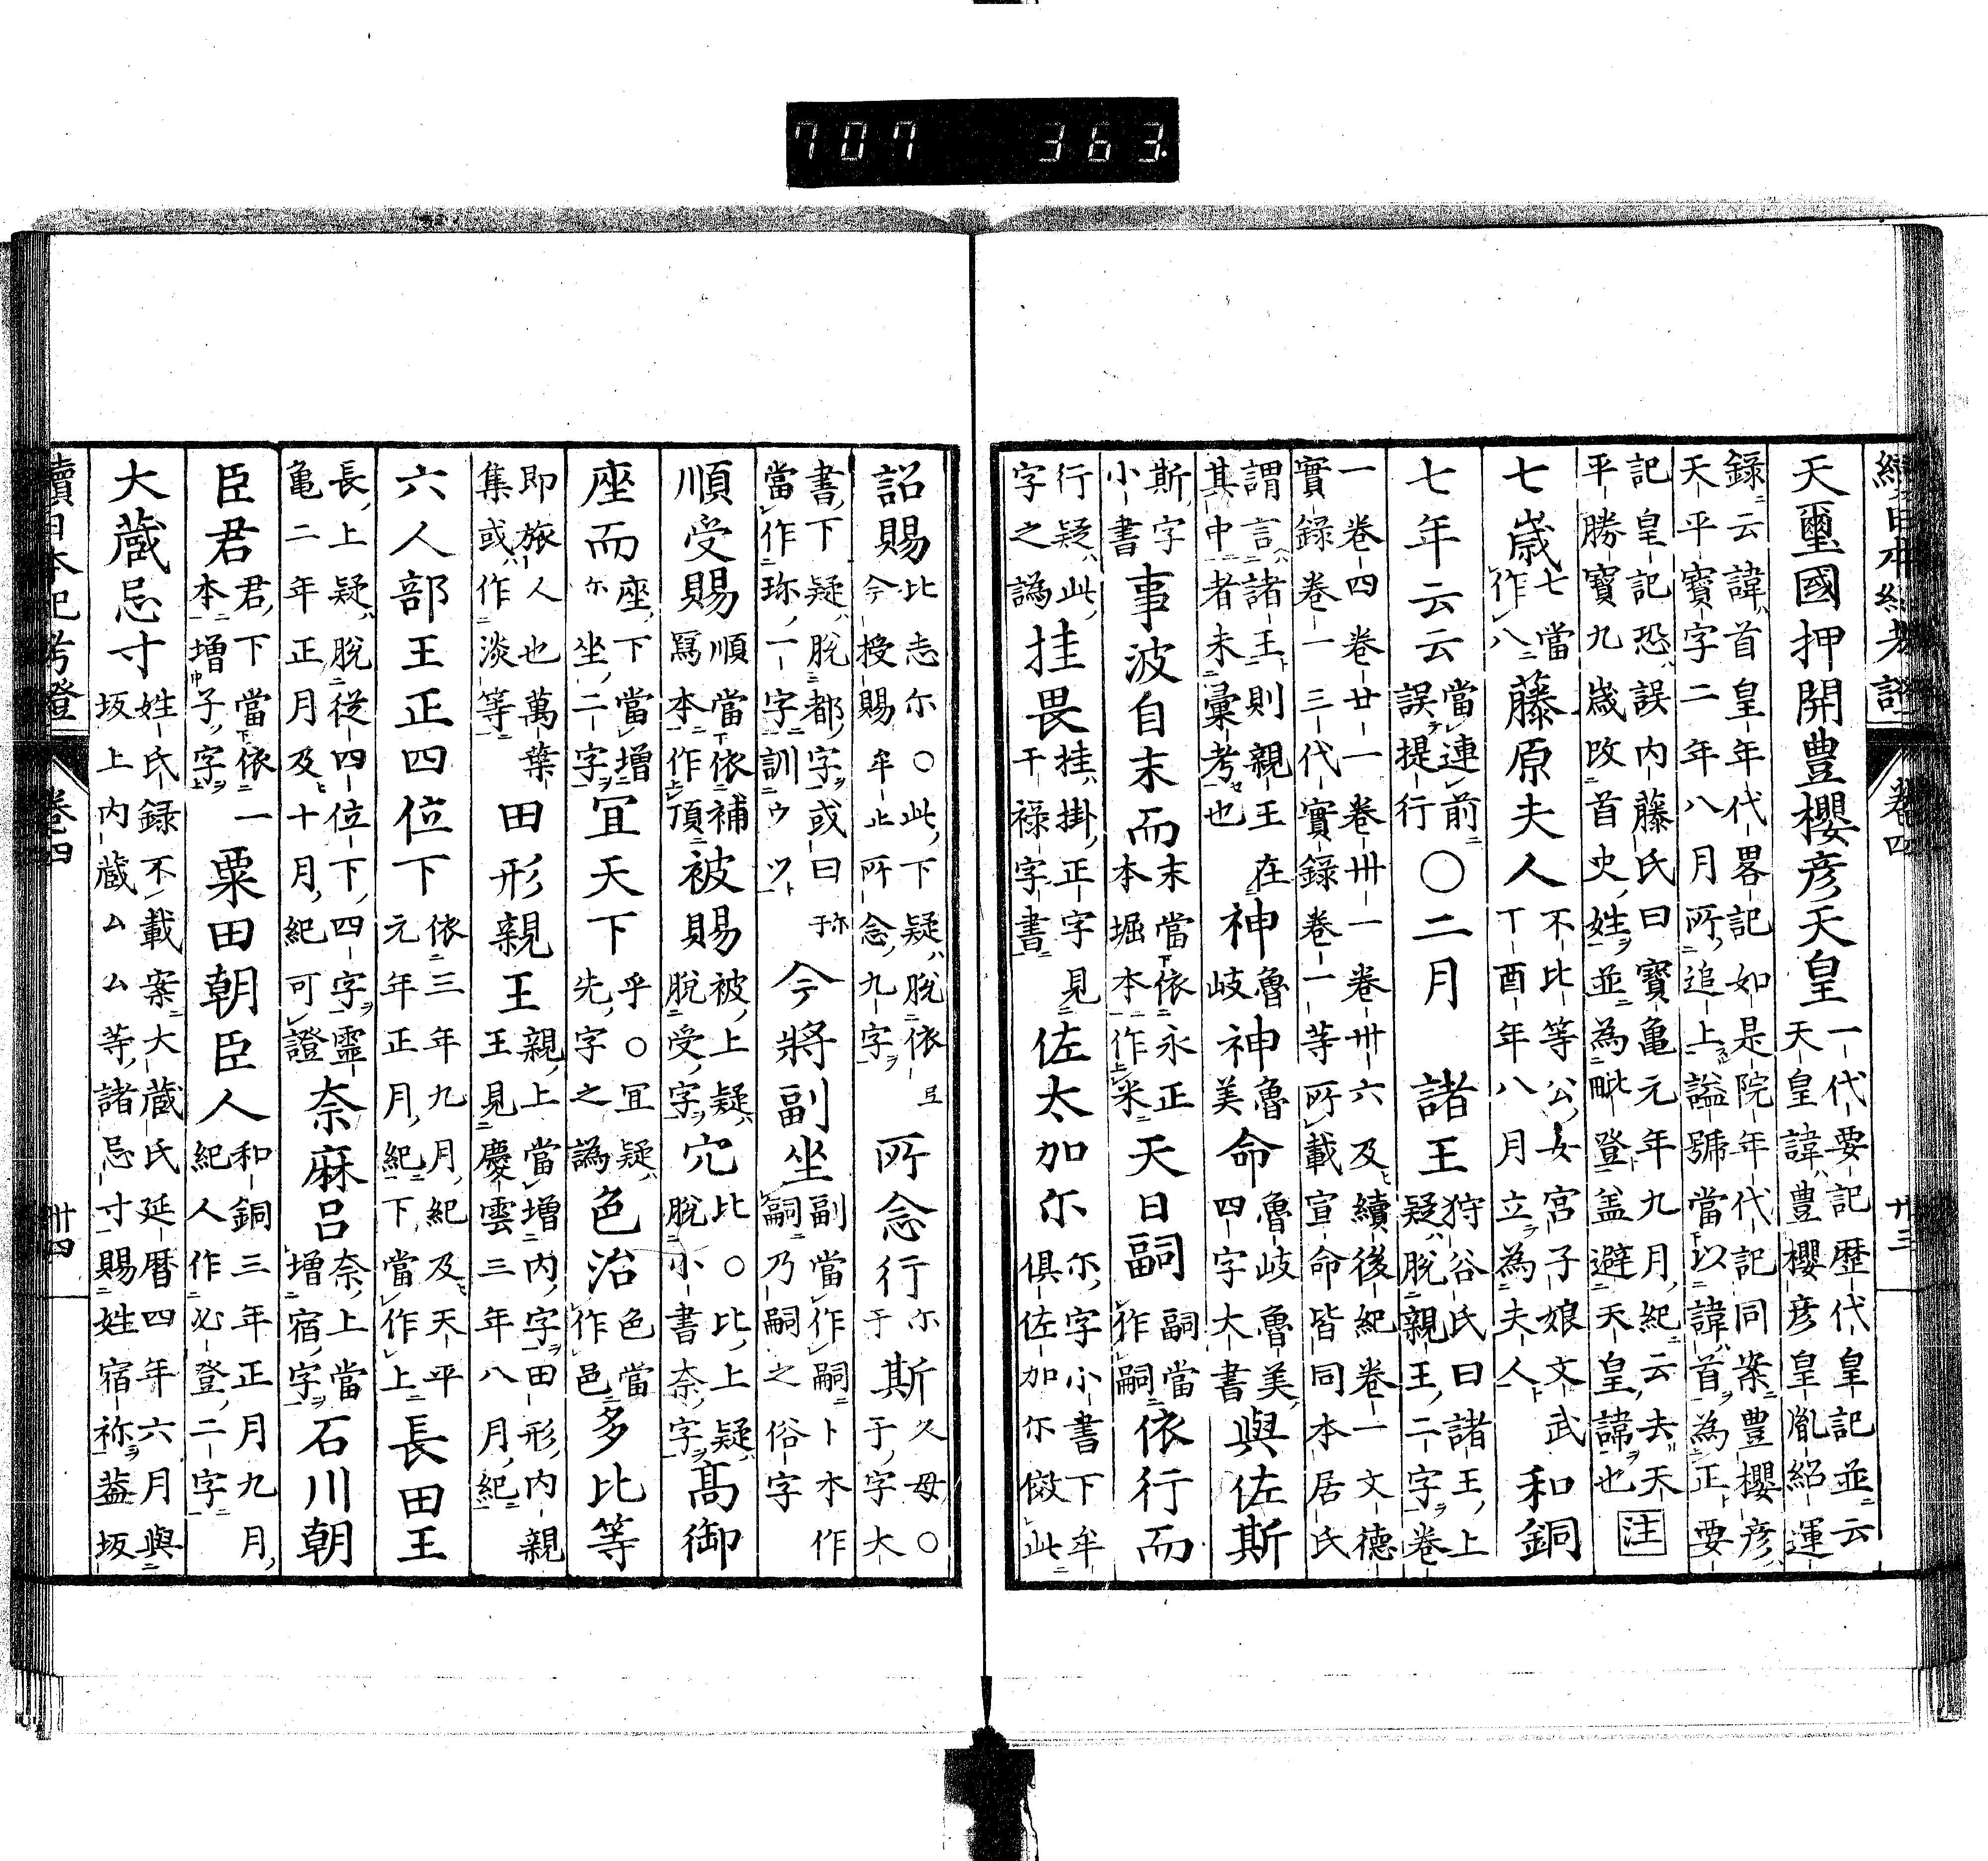 707 363.
續日本紀考證 卷四 廿三
天璽國押開豊櫻彦天皇 一代要記歴代皇記並云天皇諱豊櫻彦皇胤紹運
録云諱首皇年代畧記如是院年代記同案豊櫻彦天平寶字二年八月所追上謚號當以諱首為正要
記皇記恐誤内藤氏曰寶亀元年九月紀云去天平勝寶九歳改首史姓並為毗登盖避天皇諱也 注
七歳 七當作八 藤原夫人 不比等公女宮子娘文武丁酉年八月立為夫人 和銅
七年云云 當連前誤提行 〇二月 諸王 狩谷氏曰諸王上疑脱親王二字卷
一卷四卷廿一卷卅一卷卅六及續後紀卷一文德實録卷一三代實録卷一等所載宣命皆同本居氏
謂言諸王則親王在其中者未彙考也 神魯岐神魯美命 魯岐魯美四字大書 與佐斯
斯字小書 事波自末而 末當依永正本堀本作米 天日嗣 嗣當作嗣 依行而
行疑此字之譌 挂畏 挂掛正字見干禄字書 佐太加尓 尓字小書下牟俱佐加尓傚此
詔賜 比志尓〇此下疑脱依今授賜牟止所念九字 所念行 尓于 斯 久母〇于字大
書下疑脱都字或曰弥當作珎一字訓ウツ 今將副坐 副當作嗣卜本作嗣乃嗣之俗字
順受賜 順當依補寫本作頂 被賜 被上疑脱受字 宂 比〇比上疑脱小書奈字 髙御
座而 座下當增尓坐二字 宜天下 乎〇宜疑先字之譌 色治 色當作邑 多比等
即旅人也萬葉集或作淡等 田形親王 親上當增内字田形内親王見慶雲三年八月紀
六人部王正四位下 依三年九月紀及天平元年正月紀下當作上 長田王
長上疑脱從四位下四字靈亀二年正月及十月紀可證 奈麻呂 奈上當增宿字 石川朝
臣君 君下當依一本增子字 粟田朝臣人 和銅三年正月九月紀人作必登二字
大蔵忌寸 姓氏録不載案大蔵氏延暦四年六月與坂上内蔵厶厶等諸忌寸賜姓宿祢葢坂
續日本紀考證 卷四 廿四